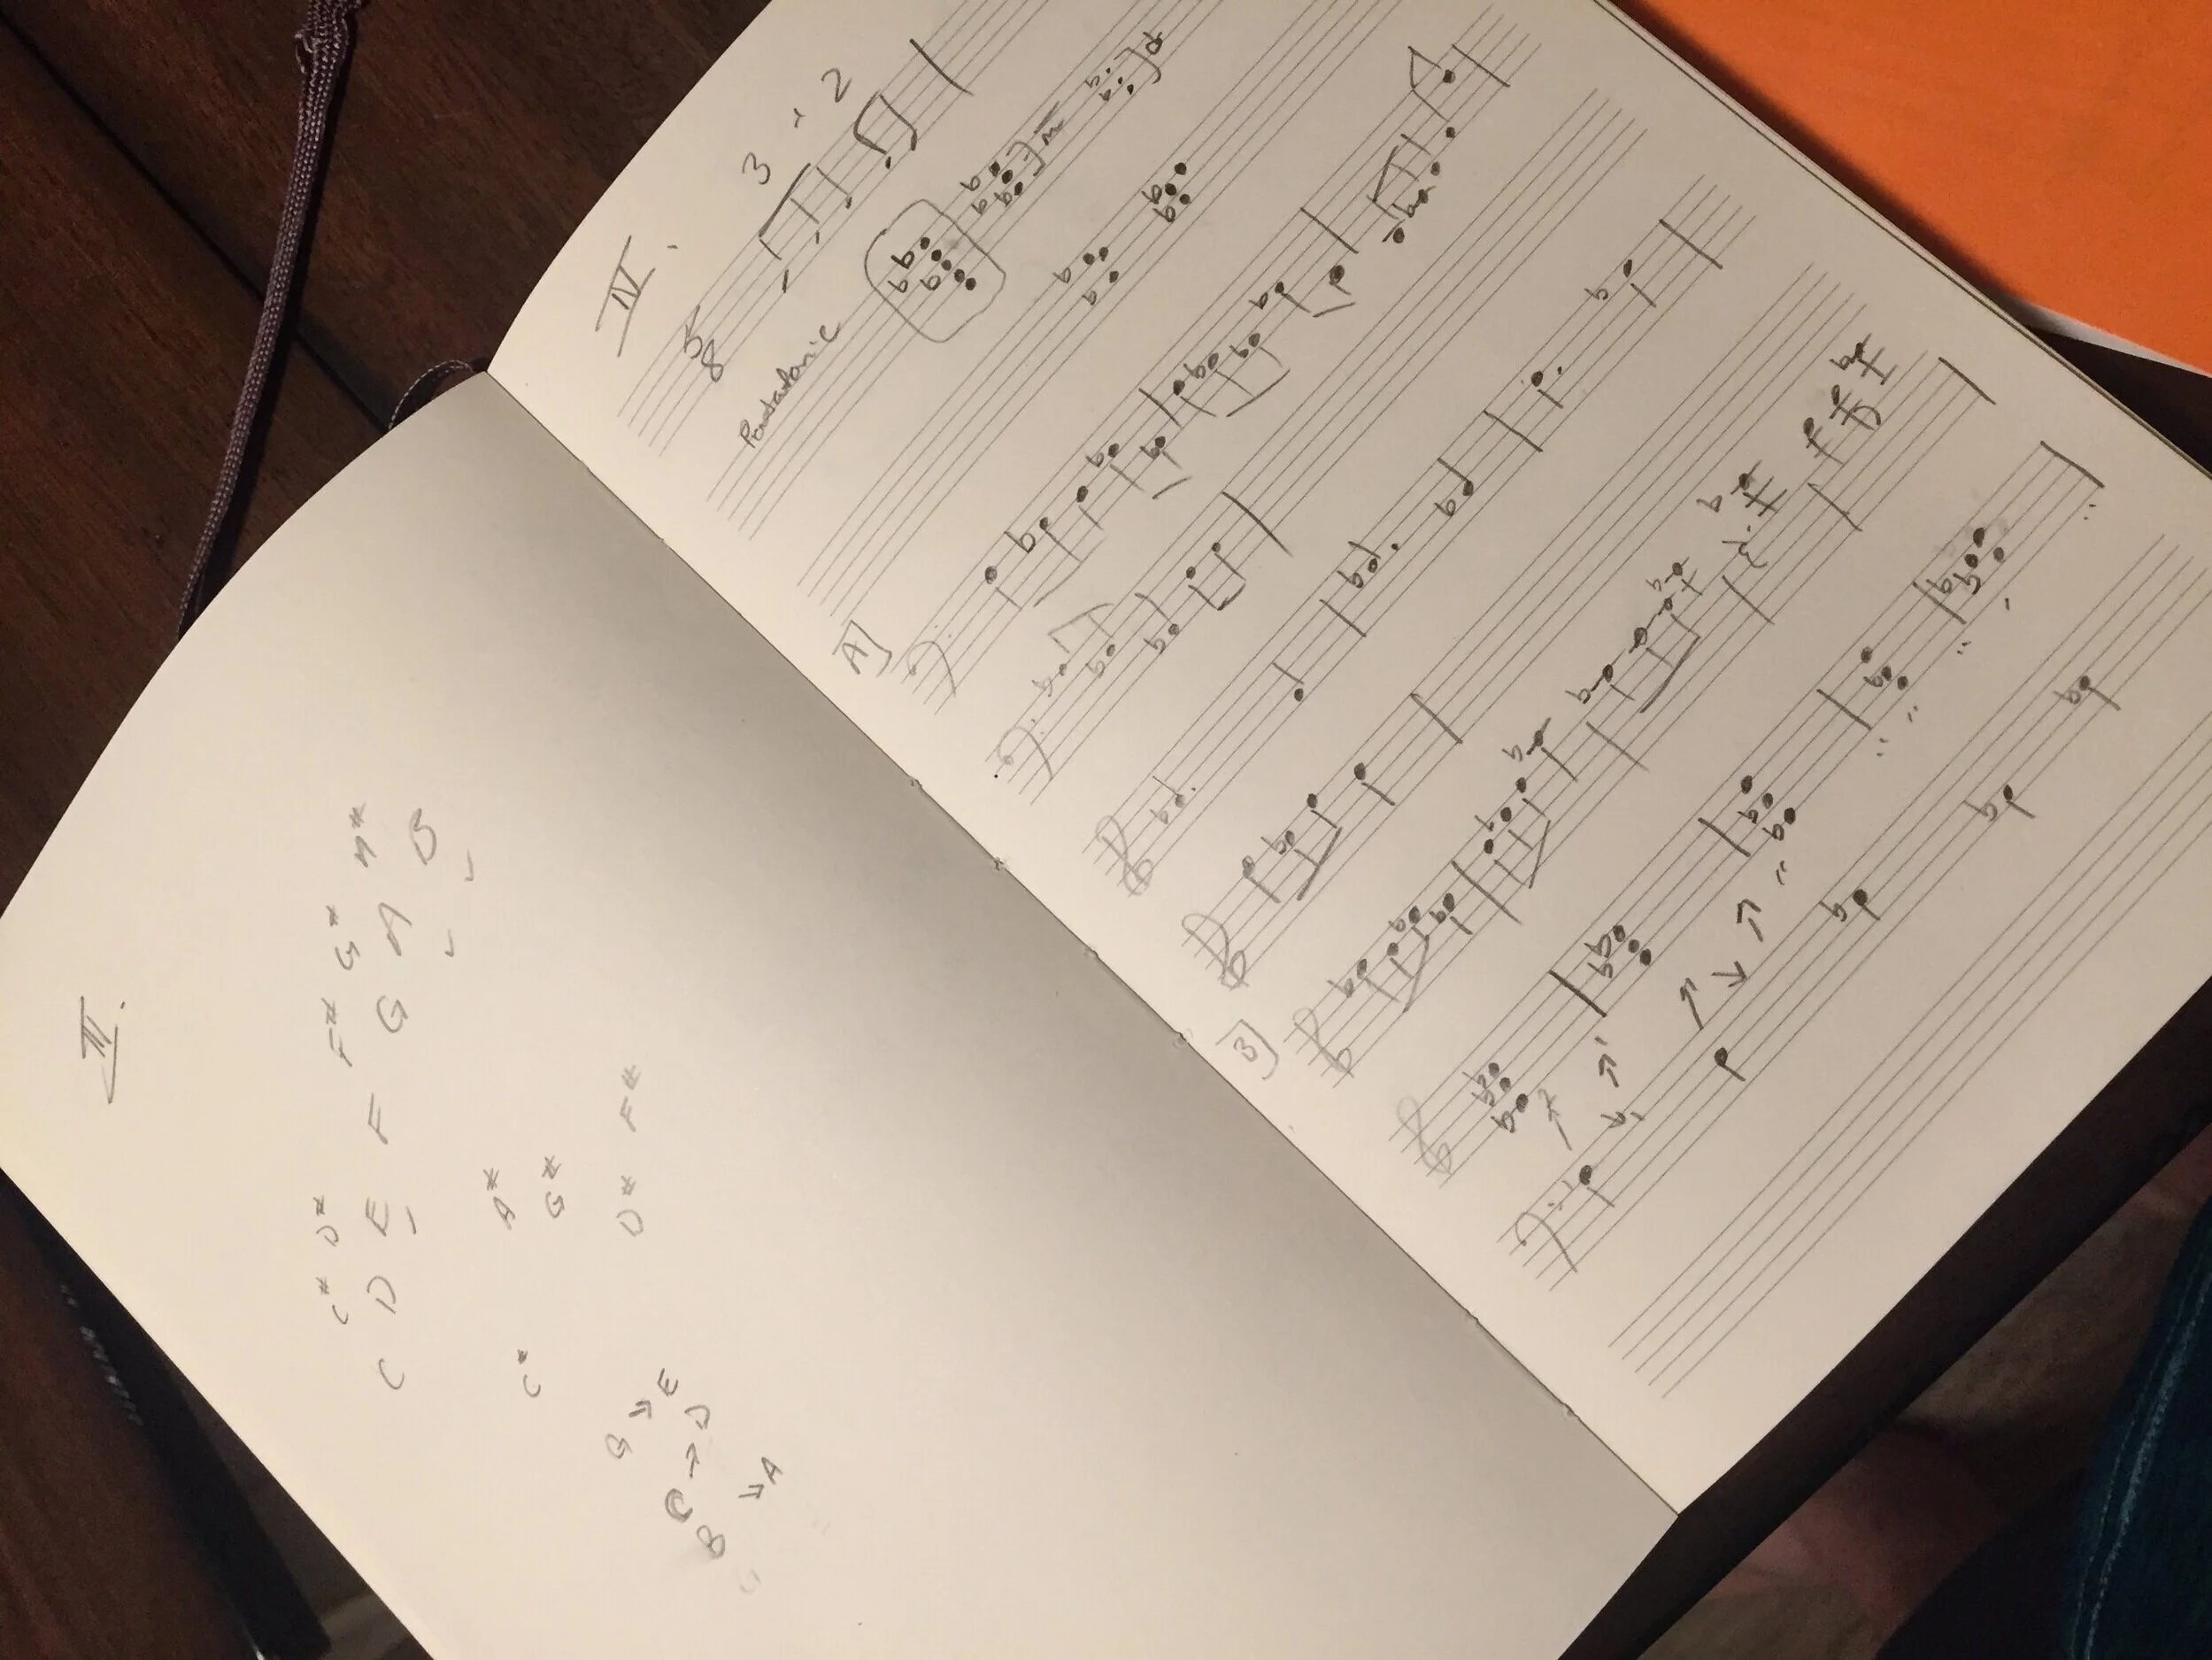 II.
C# D# F# G# A#
C D E F G A B
A#
C# G#
D# F#
G » E
C → D
B » A
IV.
3 + 2
5
8
Pentatonic
A]
B]